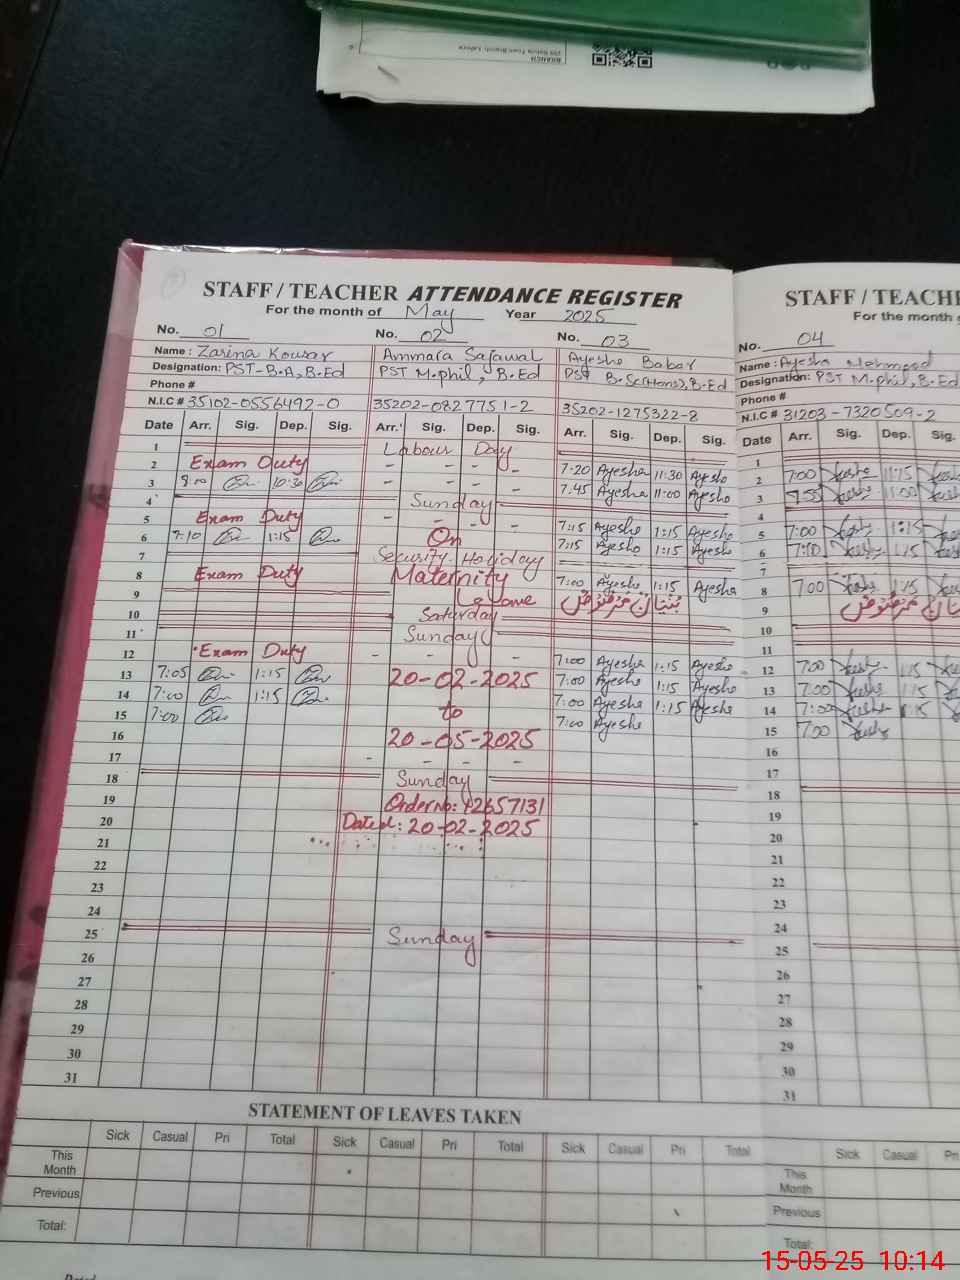 BRANCH
STAFF / TEACHER ATTENDANCE REGISTER
For the month of May Year 2025
No. 01 No. 02 No. 03
Name : Zarina Kousar Ammara Sajawal Ayesha Babar
Designation: PST-B.A, B.Ed PST M.phil, B.Ed PST B.Sc(Hons), B.Ed
Phone #
N.I.C # 35102-0556492-0 35202-0827751-2 35202-1275322-8
Date Arr. Sig. Dep. Sig. Arr. Sig. Dep. Sig. Arr. Sig. Dep. Sig.
1 Labour Day
2 Exam Duty - - - - 7-20 Ayesha 11:30 Ayesha
3 8:00 10:30 - - - - 7.45 Ayesha 11:00 Ayesha
4 Sunday
5 Exam Duty - - - - 7:15 Ayesha 1:15 Ayesha
6 7:10 1:15 On 7:15 Ayesha 1:15 Ayesha
7 Security Holiday
8 Exam Duty Maternity 7:00 Ayesha 1:15 Ayesha
9 Leave بُنْيَانٌ مَرْصُوصٌ
10 Saturday
11 Sunday
12 Exam Duty - - - 7:00 Ayesha 1:15 Ayesha
13 7:05 1:15 20-02-2025 7:00 Ayesha 1:15 Ayesha
14 7:00 1:15 to 7:00 Ayesha 1:15 Ayesha
15 7:00 20-05-2025 7:00 Ayesha
16
17 - - - -
18 Sunday
19 Order No: 42657131
20 Dated: 20-02-2025
21
22
23
24
25 Sunday
26
27
28
29
30
31
STATEMENT OF LEAVES TAKEN
Sick Casual Pri Total Sick Casual Pri Total Sick Casual Pri Total
This Month
Previous
Total:
STAFF / TEACHE
For the month
No. 04
Name : Ayesha Mehmood
Designation: PST M.phil, B.Ed
Phone #
N.I.C # 31203-7320509-2
Date Arr. Sig. Dep. Sig.
1
2 7:00 11:15
3 7:55 11:00
4
5 7:00 1:15
6 7:10 1:15
7
8 7:00 1:15
9 بُنْيَانٌ مَرْصُوصٌ
10
11
12 7:00 1:15
13 7:00 1:15
14 7:00 1:15
15 7:00
16
17
18
19
20
21
22
23
24
25
26
27
28
29
30
31
Sick Casual Pri
This Month
Previous
Total:
15-05-25 10:14